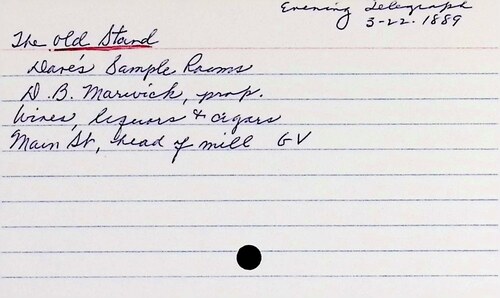 Evening Telegraph
3-22-1889
The Old Stand
Dave's Sample Rooms
D. B. Marwick, prop.
Wines, liquors & cigars
Main St, head of mill GV